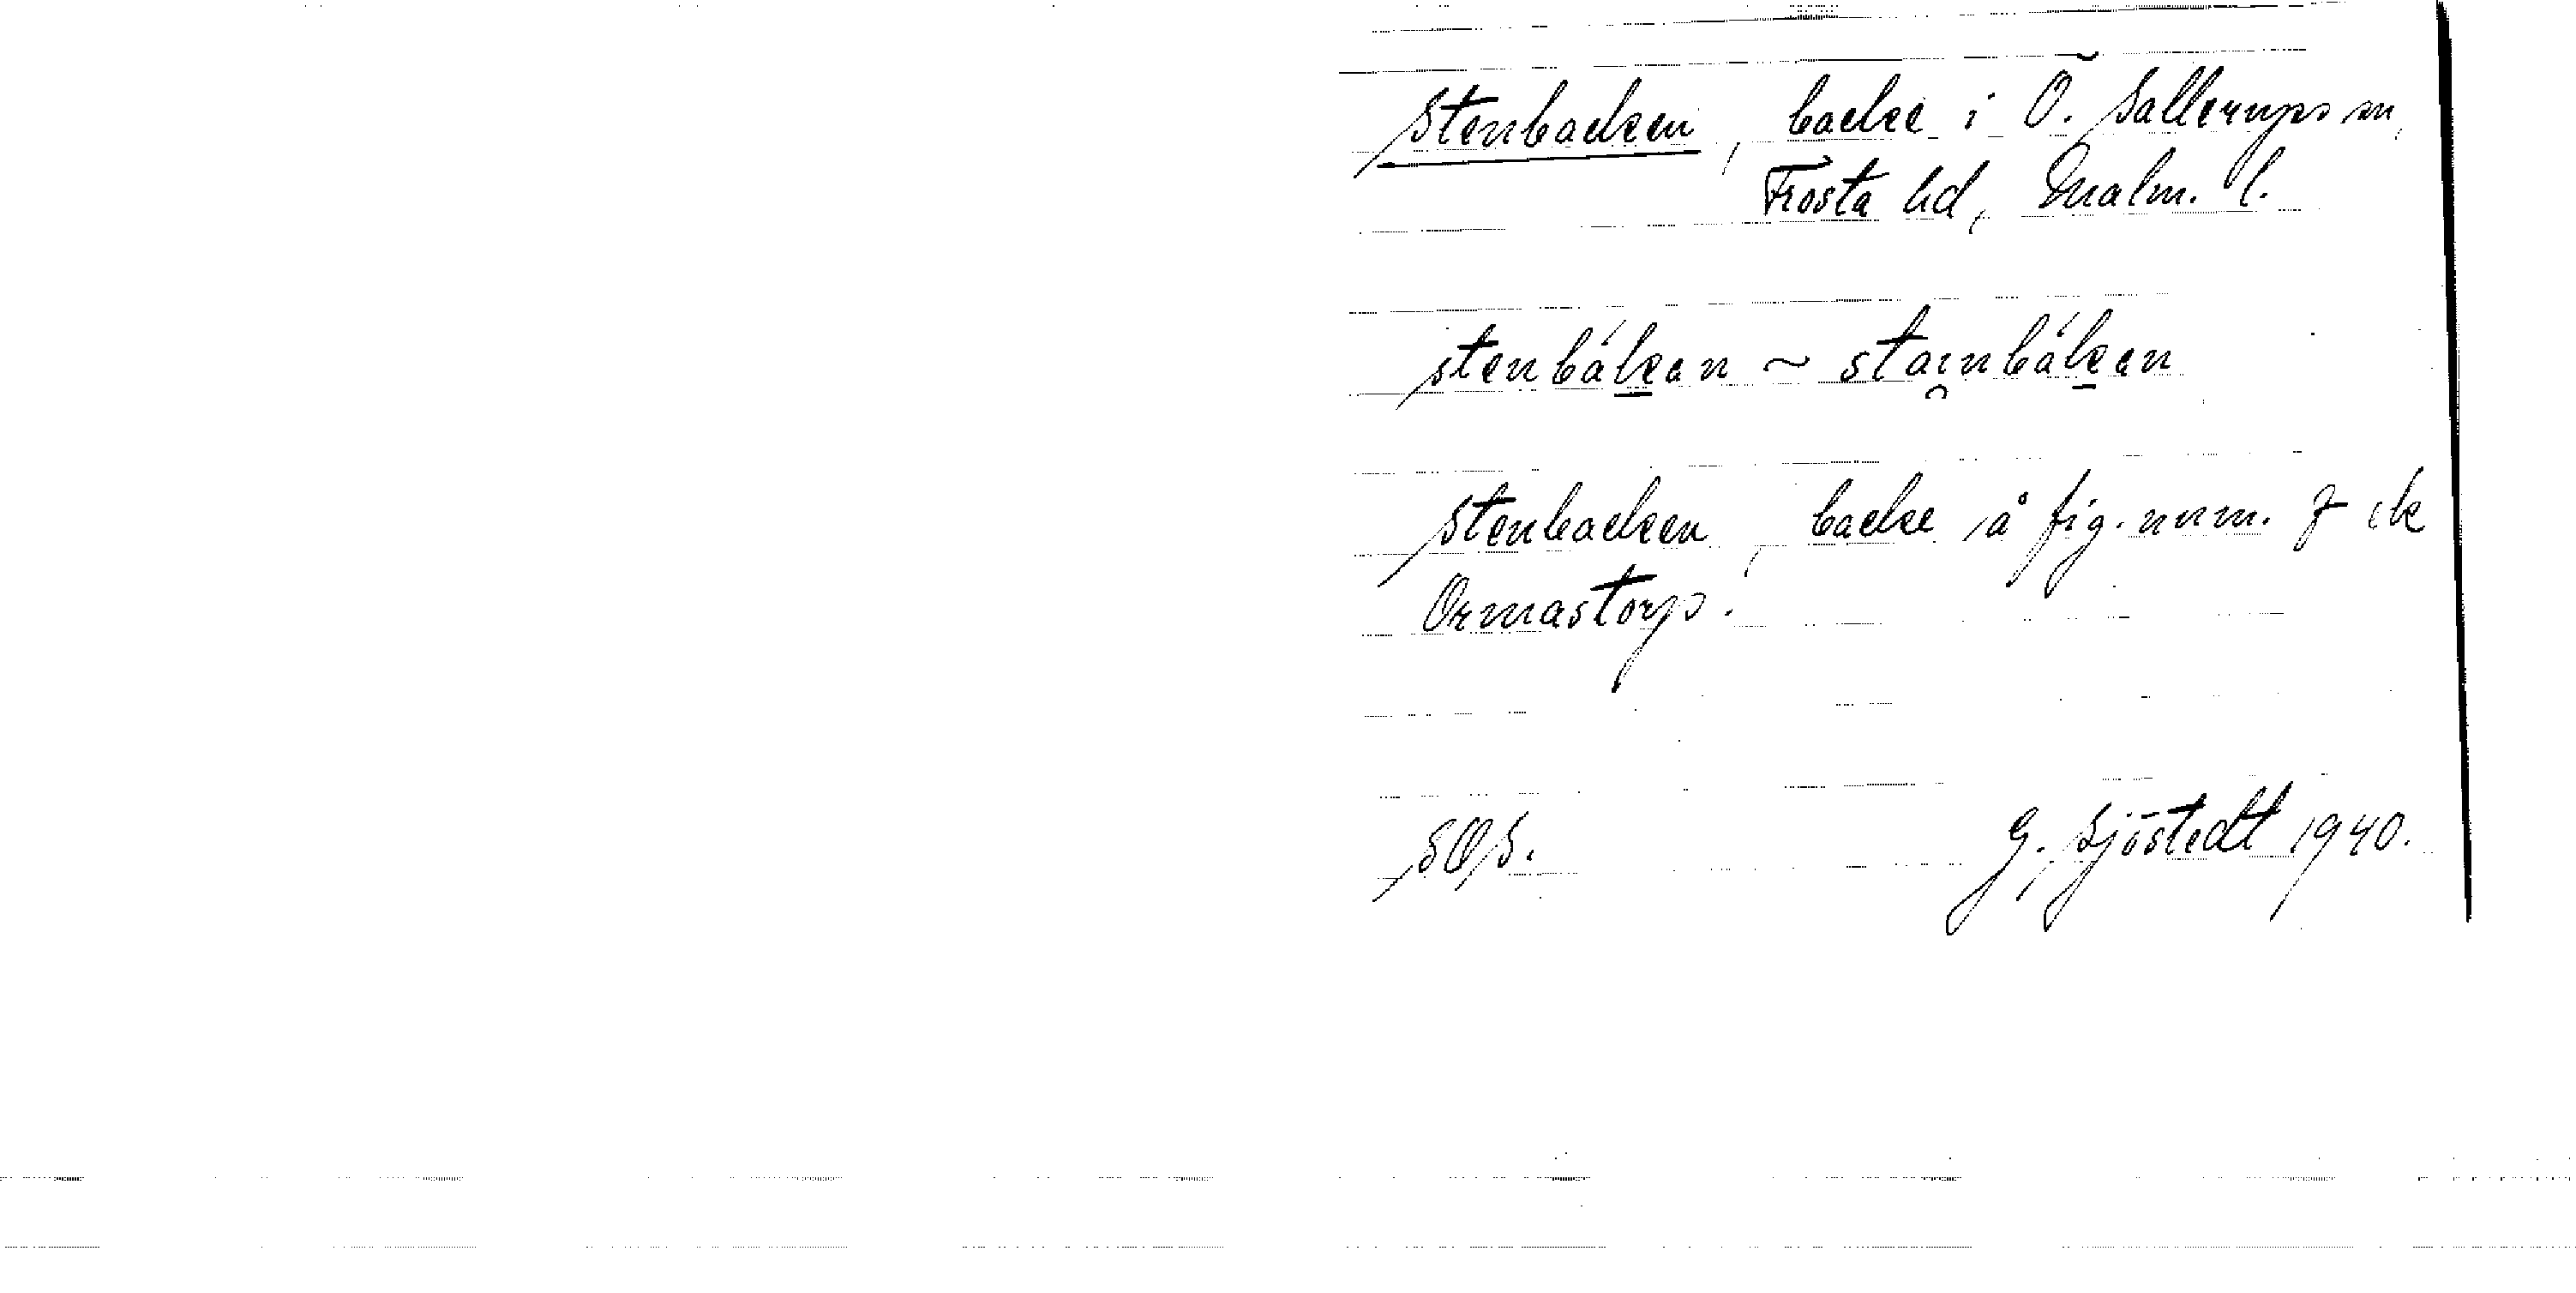 Stenbacken, backe i Ö. Sallerups sn,
Frosta hd, Malm. l.
stenbákan ~ stai̯nbákan
Stenbacken, backe å fig. num. 7 ck
Ormastorp.
SOS. G. Sjöstedt 1940.